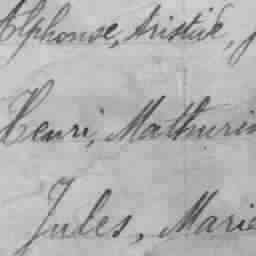 Alphonse, Aristide, J
Henri, Mathurin
Jules, Marie